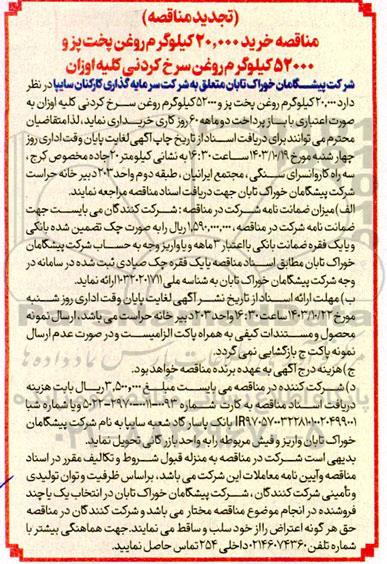 (تجدید مناقصه)
مناقصه خرید ۲۰,۰۰۰ کیلوگرم روغن پخت پز و
۵۲۰۰۰ کیلوگرم روغن سرخ کردنی کلیه اوزان
شرکت پیشگامان خوراک تابان متعلق به شرکت سرمایه گذاری کارکنان سایپا در نظر
دارد ۲۰,۰۰۰ کیلوگرم روغن پخت پز و ۵۲۰۰۰ کیلوگرم روغن سرخ کردنی کلیه اوزان به
صورت اعتباری با باز پرداخت دو ماهه ۶۰ روز کاری خریداری نماید، لذا متقاضیان
محترم می توانند برای دریافت اسناد از تاریخ چاپ آگهی لغایت پایان وقت اداری روز
چهارشنبه مورخ ۱۴۰۳/۱۰/۱۹ ساعت ۱۶:۳۰ به نشانی کیلومتر ۲۰ جاده مخصوص کرج،
سه راه کاروانسرای سنگی، مجتمع ایرانیان، طبقه دوم واحد ۲۰۳ دبیر خانه حراست
شرکت پیشگامان خوراک تابان جهت دریافت اسناد مناقصه مراجعه نمایند.
الف) میزان ضمانت نامه شرکت در مناقصه: شرکت کنندگان می بایست جهت
ضمانت نامه شرکت در مناقصه، ۱,۵۹۰,۰۰۰,۰۰۰ ریال را به صورت چک تضمین شده بانکی
و یا یک فقره ضمانت بانکی با اعتبار ۳ ماهه و یا واریز وجه به حساب شرکت پیشگامان
خوراک تابان مطابق اسناد مناقصه یا یک فقره چک صیادی ثبت شده در سامانه در
وجه شرکت پیشگامان خوراک تابان به شناسه ملی ۱۰۳۲۰۲۰۷۱۱ ارائه نماید.
ب) مهلت ارائه اسناد از تاریخ نشر آگهی لغایت پایان وقت اداری روز شنبه
مورخ ۱۴۰۳/۱۰/۲۲ ساعت ۱۶:۳۰ واحد ۲۰۳ دبیر خانه حراست می باشد، ارسال نمونه
محصول و مستندات کیفی به همراه پاکت الزامیست و در صورت عدم ارسال
نمونه پاکت ج بازگشایی نمی گردد.
ج) هزینه درج آگهی به عهده برنده مناقصه خواهد بود.
د) شرکت کننده در مناقصه می بایست مبلغ ۳,۵۰۰,۰۰۰ ریال بابت هزینه
دریافت اسناد مناقصه به کارت شماره و یا شماره شبا
بانک پاسارگاد شعبه سایپا به نام شرکت پیشگامان
خوراک تابان واریز و فیش مربوطه را به واحد بازرگانی تحویل نماید.
بدیهی است شرکت در مناقصه به منزله قبول شروط و تکالیف مقرر در اسناد
مناقصه وآیین نامه معاملات این شرکت می باشد، براساس ظرفیت و توان تولیدی
و تأمینی شرکت کنندگان، شرکت پیشگامان خوراک تابان در انتخاب یک یا چند
فروشنده در انجام موضوع مناقصه مختار می باشد و شرکت کنندگان در مناقصه
حق هر گونه اعتراض را از خود سلب و ساقط می نمایند.جهت هماهنگی بیشتر با
شماره تلفن ۰۲۱۴۶۰۷۴۳۶۰ داخلی ۲۵۴ تماس حاصل نمایید.